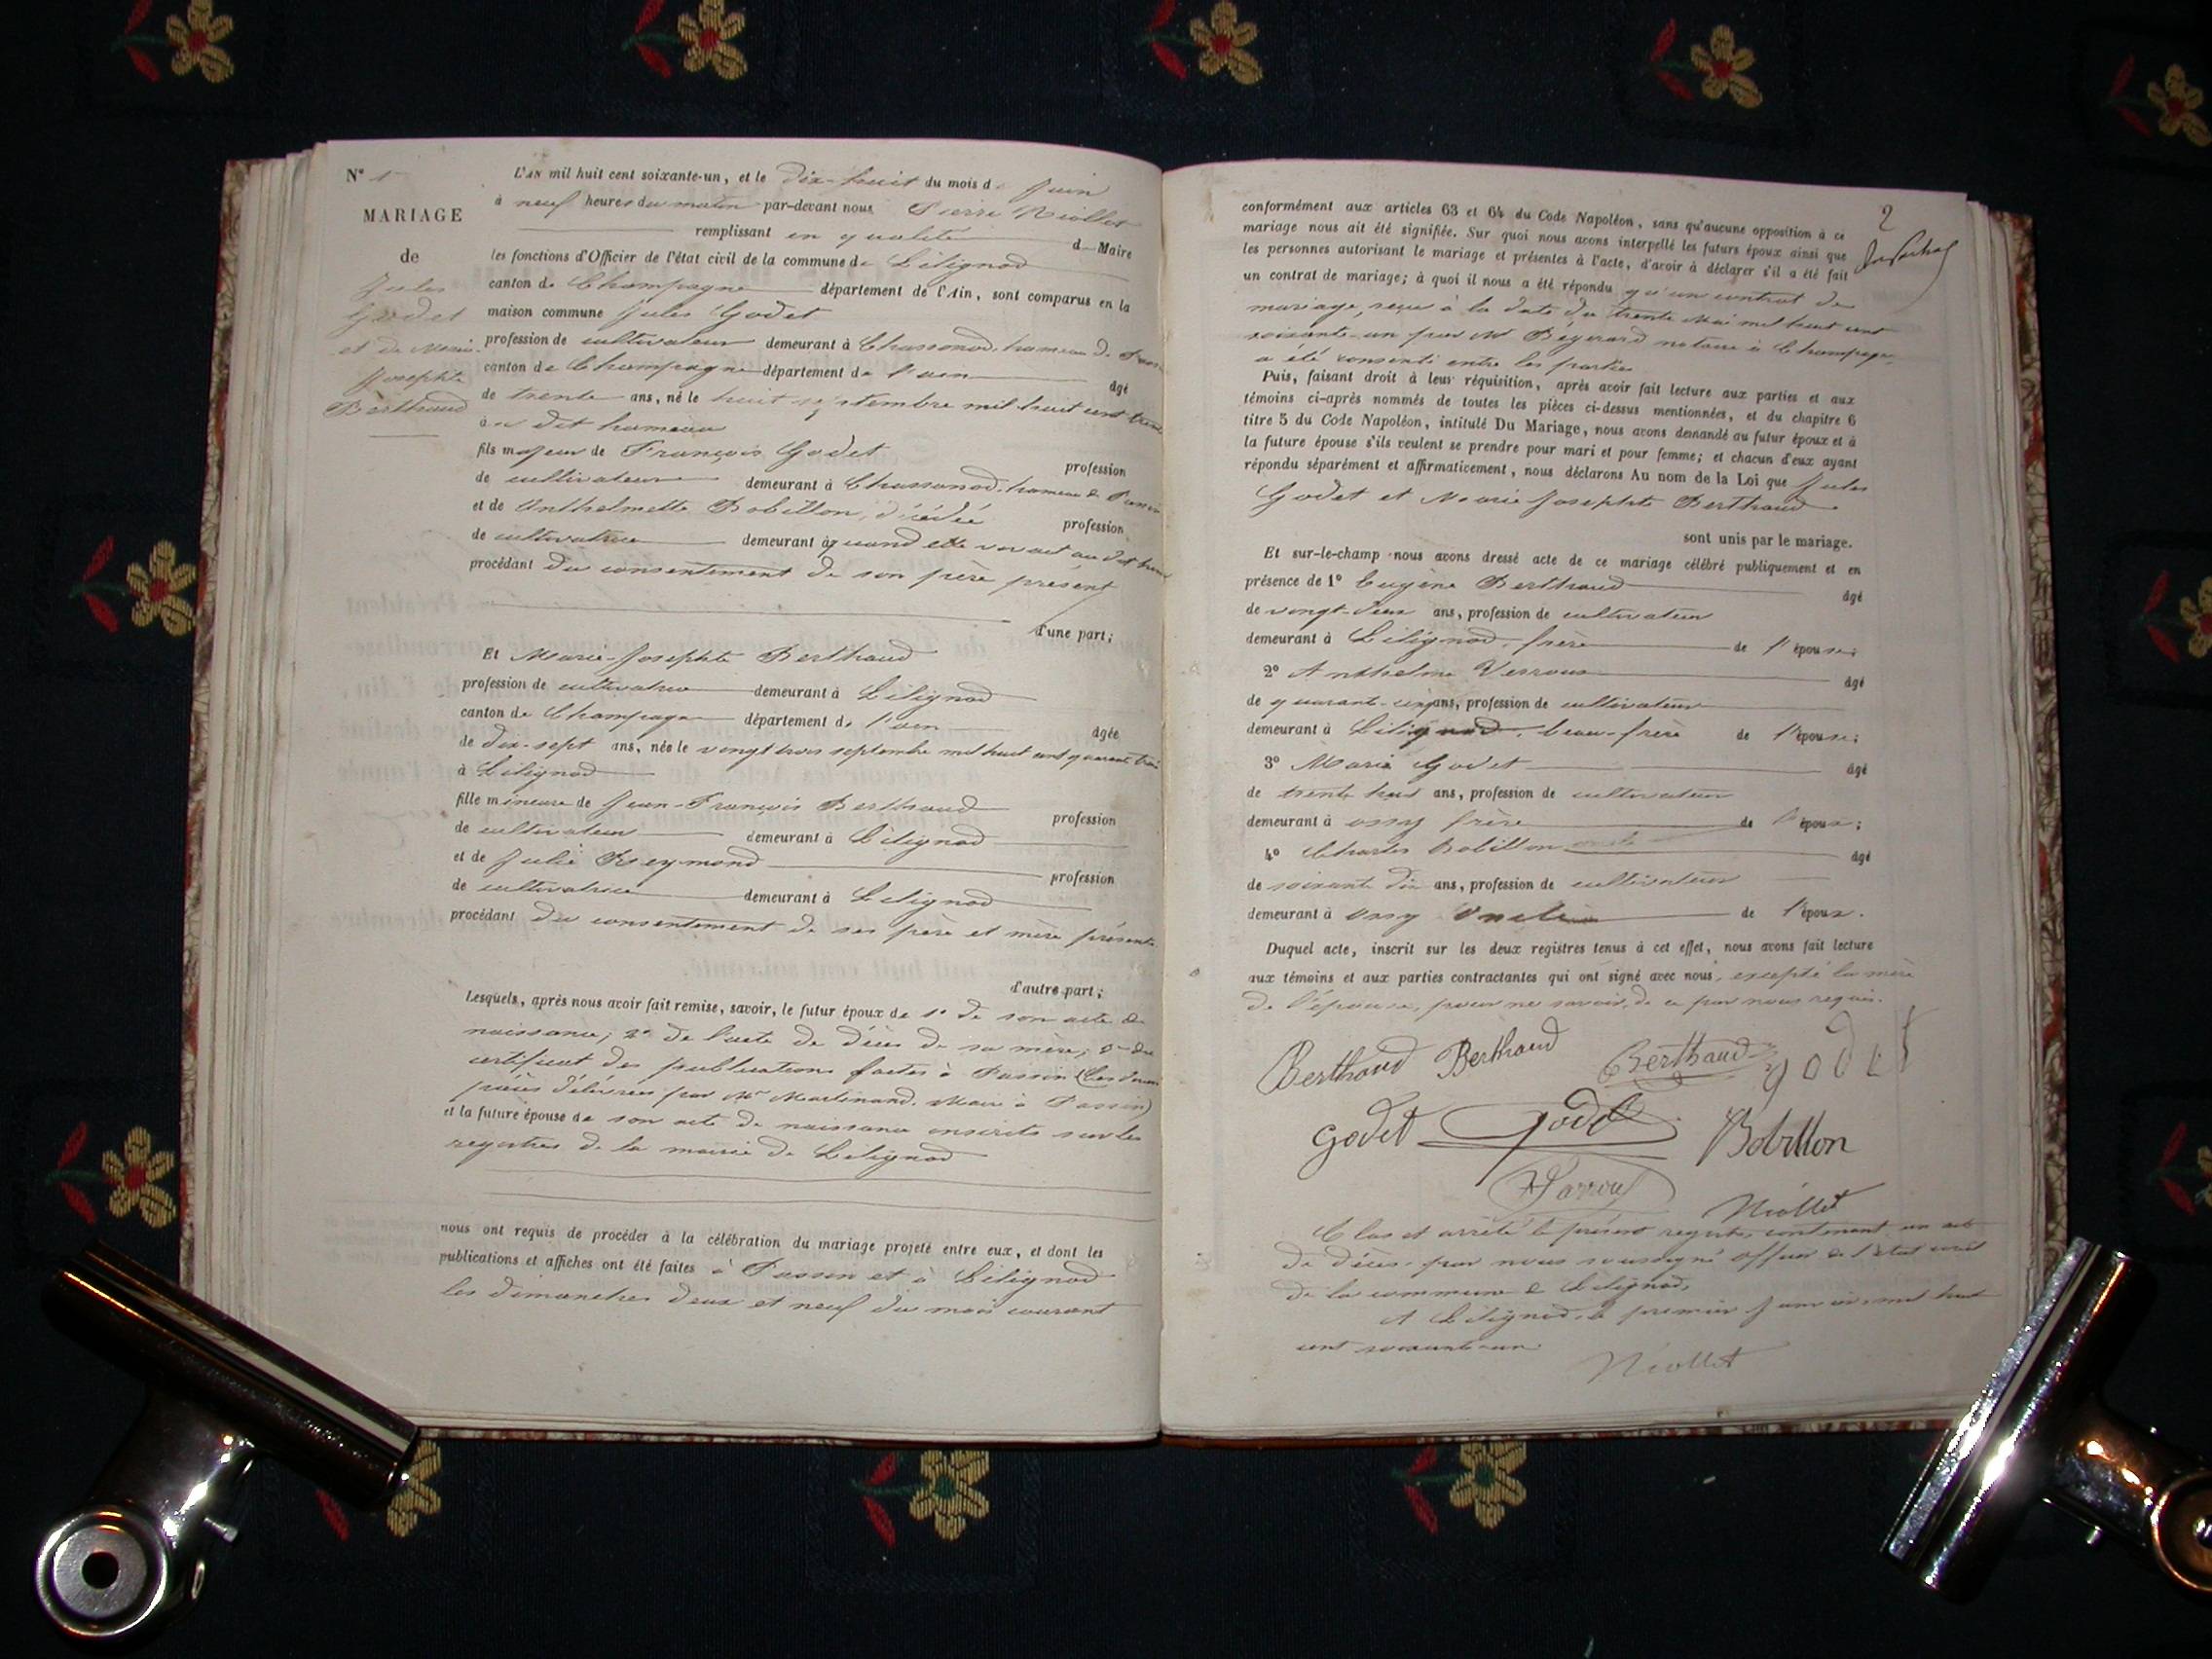 N° 1
MARIAGE
de
Jules
Godet
et de Marie-
Josephte
Berthaud
L'AN mil huit cent soixante-un, et le dix-huit du mois d. Juin
à neuf heures du matin par-devant nous Pierre Niollet
remplissant en qualité d Maire
les fonctions d'Officier de l'état civil de la commune de Lilignod
canton de Champagne département de l'Ain, sont comparus en la
maison commune Jules Godet
profession de cultivateur demeurant à Chassonod, hameau de Passin
canton de Champagne département de l'ain âgé
de trente ans, né le huit septembre mil huit cent trente
au dit hameau
fils majeur de François Godet profession
de cultivateur demeurant à Chassonod, hameau de Passin
et de Anthelmette Bobillon, décédée profession
de cultivatrice demeurant à quand elle vivait au dit hameau
procédant du consentement de son père présent
d'une part;
Et Marie-Josephte Berthaud
profession de cultivatrice demeurant à Lilignod
canton de Champagne département de l'ain âgée
de dix-sept ans, née le vingt trois septembre mil huit cent quarante trois
à Lilignod
fille mineure de Jean-François Berthaud profession
de cultivateur demeurant à Lilignod
et de Julie Reymond profession
de cultivatrice demeurant à Lilignod
procédant du consentement de ses père et mère présents
d'autre part;
Lesquels, après nous avoir fait remise, savoir, le futur époux de 1° de son acte de
naissance; 2° de l'acte de décès de sa mère; 3° du
certificat des publications faites à Passin (les deux
pièces délivrées par Mr Martinand, Maire à Passin)
et la future épouse de son acte de naissance inscrits sur les
registres de la mairie de Lilignod
nous ont requis de procéder à la célébration du mariage projeté entre eux, et dont les
publications et affiches ont été faites à Passin et à Lilignod
les dimanches deux et neuf du mois courant
2
conformément aux articles 63 et 64 du Code Napoléon, sans qu'aucune opposition à ce
mariage nous ait été signifiée. Sur quoi nous avons interpellé les futurs époux ainsi que
les personnes autorisant le mariage et présentes à l'acte, d'avoir à déclarer s'il a été fait
un contrat de mariage; à quoi il nous a été répondu qu'un contrat de
mariage, reçu à la date du trente Mai mil huit cent
soixante-un par Mr notaire à Champagne
a été consenti entre les parties
Puis, faisant droit à leur réquisition, après avoir fait lecture aux parties et aux
témoins ci-après nommés de toutes les pièces ci-dessus mentionnées, et du chapitre 6
titre 5 du Code Napoléon, intitulé Du Mariage, nous avons demandé au futur époux et à
la future épouse s'ils veulent se prendre pour mari et pour femme; et chacun d'eux ayant
répondu séparément et affirmativement, nous déclarons Au nom de la Loi que Jules
Godet et Marie Josephte Berthaud
sont unis par le mariage.
Et sur-le-champ nous avons dressé acte de ce mariage célébré publiquement et en
présence de 1° Eugène Berthaud âgé
de vingt-deux ans, profession de cultivateur
demeurant à Lilignod, frère de l'épouse;
2° Anthelme Verrous âgé
de quarante-cinq ans, profession de cultivateur
demeurant à Lilignod, beau-frère de l'épouse;
3° Marie Godet âgé
de trente huit ans, profession de cultivateur
demeurant à ossy frère de l'époux;
4° Charles Bobillon âgé
de soixante dix ans, profession de cultivateur
demeurant à ossy oncle de l'époux.
Duquel acte, inscrit sur les deux registres tenus à cet effet, nous avons fait lecture
aux témoins et aux parties contractantes qui ont signé avec nous, excepté la mère
de l'épouse, pour ne savoir, de ce par nous requis.
Berthaud Berthaud Berthaud godet
Godet Godet Bobillon
Niollet
Clos et arrêté le présent registre, contenant un acte
de décès par nous soussigné officier de l'état civil
de la commune de Lilignod,
A Lilignod, le premier Janvier mil huit
cent soixante-un
Niollet